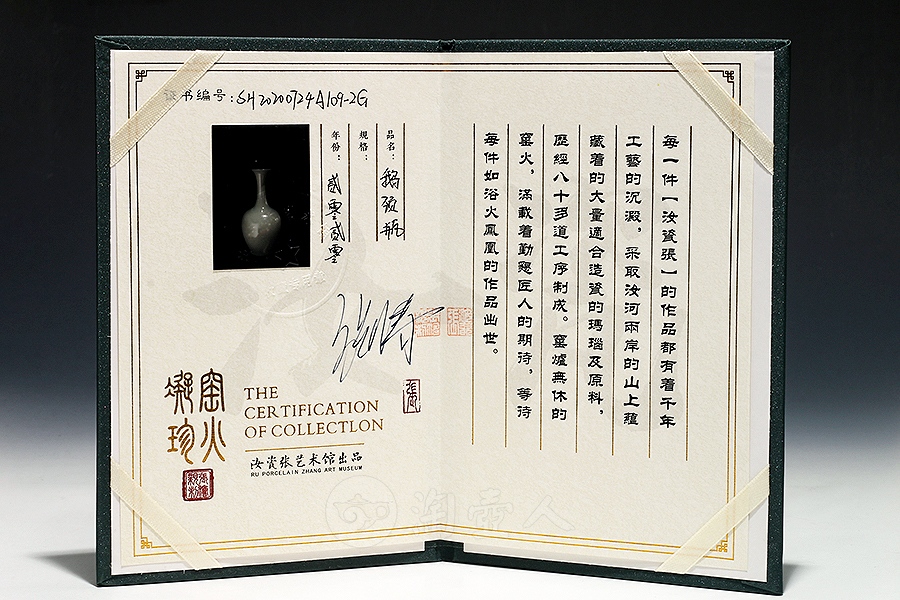 证书编号:SH20200724A109-2G
品名:鹅颈瓶
規格:
年份:貳零貳零
窑火
凝珍
THE
CERTIFICATION
OF COLLECTLON
汝瓷张艺术馆出品
RU PORCELAIN ZHANG ART MUSEUM
每一件【汝瓷張】的作品都有着千年
工藝的沉澱,采取汝河兩岸的山上蘊
藏着的大量適合造瓷的瑪瑙及原料,
歷經八十多道工序制成。窑爐無休的
窑火,滿載着勤懇匠人的期待,等待
每件如浴火鳳凰的作品出世。